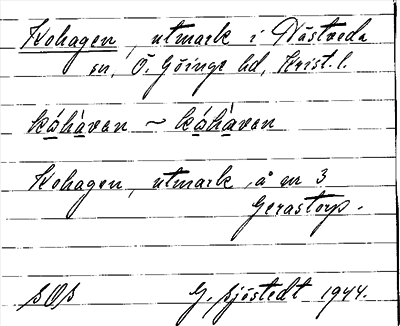 Kohagen, utmark i Nästveda
sn, Ö. Göinge hd, Krist. l.
kóhàvan ~ kóhàvan
Kohagen, utmark, å nr 3
Gerastorp.
SOS G. Sjöstedt 1944.